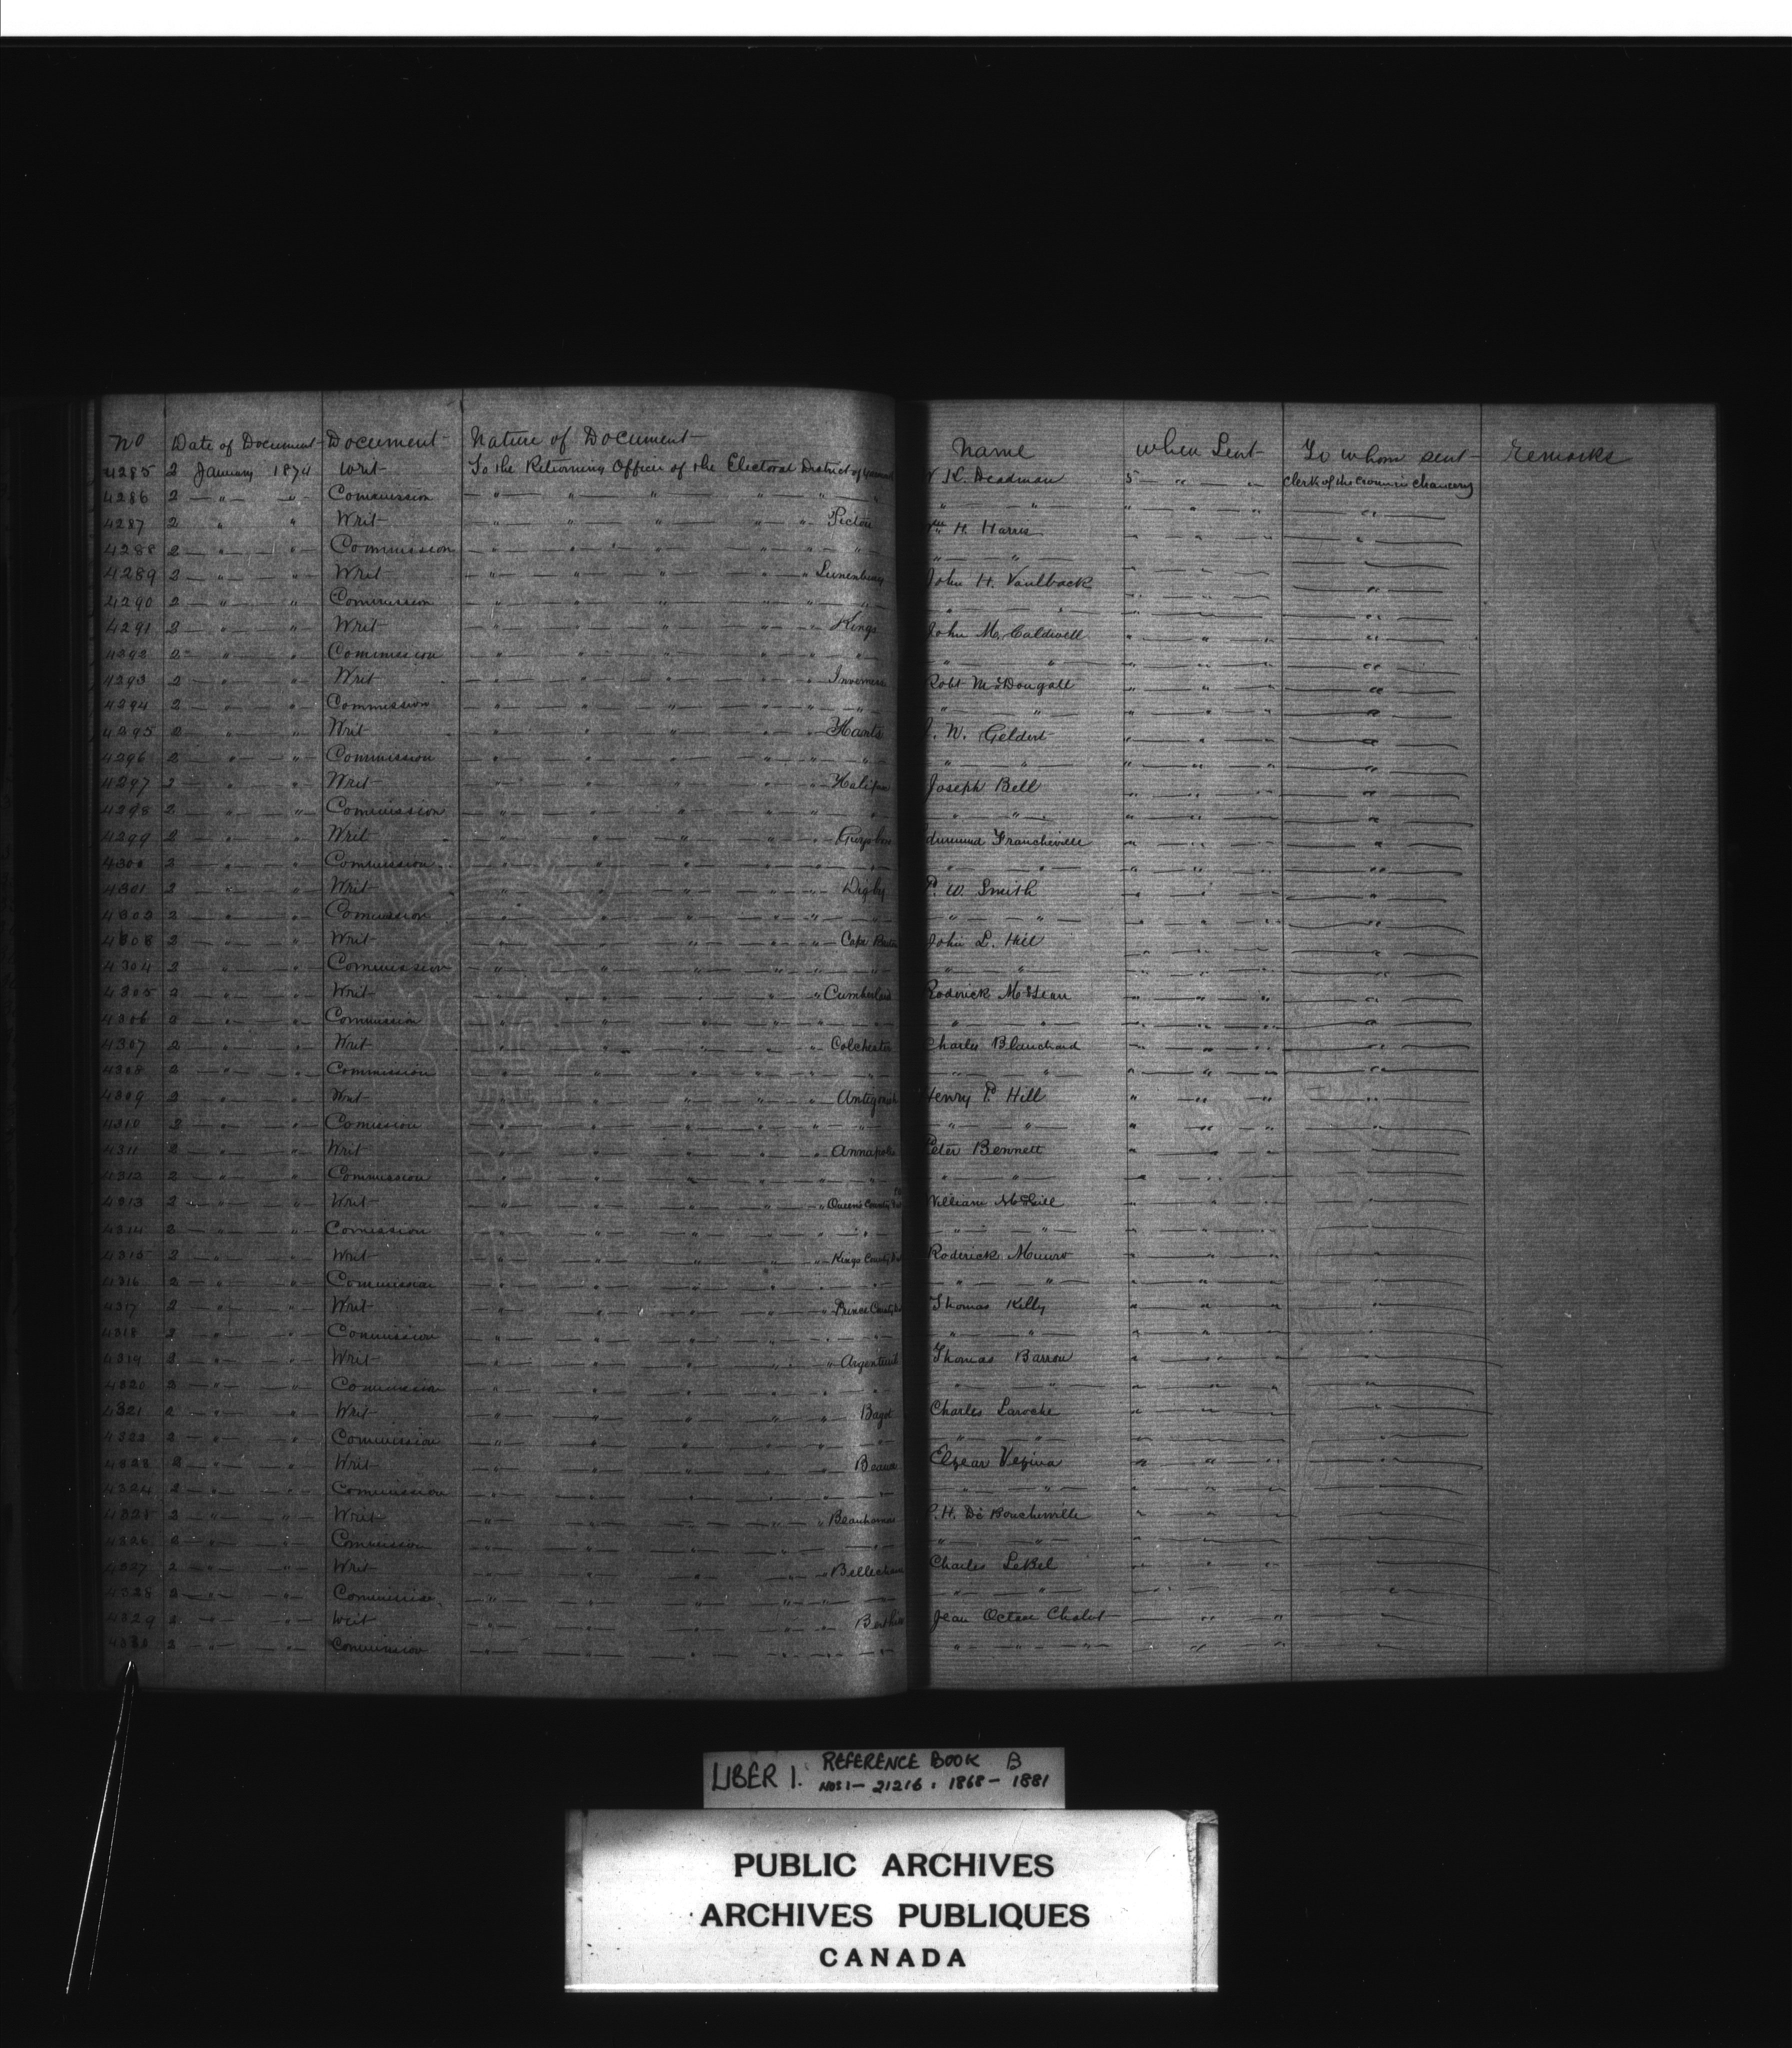 No Date of Document Document Nature of Document Name When Sent To whom sent Remarks
4285 2 January 1874 Writ To the Returning Officer of the Electoral District of K. Deadman 5 " " Clerk of the Crown in Chancery
4286 2 " " Commission " " " " " " " " " " " "
4287 2 " " Writ " " " " " Pictou Wm H. Harris " " " "
4288 2 " " Commission " " " " " " " " " " " "
4289 2 " " Writ " " " " " Lunenburg John H. Vaulback " " " "
4290 2 " " Commission " " " " " " " " " " " "
4291 2 " " Writ " " " " " Kings John M. Caldwell " " " "
4292 2 " " Commission " " " " " " " " " " " "
4293 2 " " Writ " " " " " Inverness Robt McDougall " " " "
4294 2 " " Commission " " " " " " " " " " " "
4295 2 " " Writ " " " " " Hants J. W. Geldert " " " "
4296 2 " " Commission " " " " " " " " " " " "
4297 2 " " Writ " " " " " Halifax Joseph Bell " " " "
4298 2 " " Commission " " " " " " " " " " " "
4299 2 " " Writ " " " " " Guysboro Edmund Francheville " " " "
4300 2 " " Commission " " " " " " " " " " " "
4301 2 " " Writ " " " " " Digby P. W. Smith " " " "
4302 2 " " Commission " " " " " " " " " " " "
4303 2 " " Writ " " " " " Cape Breton John L. Hill " " " "
4304 2 " " Commission " " " " " " " " " " " "
4305 2 " " Writ " " " " " Cumberland Roderick McLean " " " "
4306 2 " " Commission " " " " " " " " " " " "
4307 2 " " Writ " " " " " Colchester Charles Blanchard " " " "
4308 2 " " Commission " " " " " " " " " " " "
4309 2 " " Writ " " " " " Antigonish Henry P. Hill " " " "
4310 2 " " Comission " " " " " " " " " " " "
4311 2 " " Writ " " " " " Annapolis Peter Bennett " " " "
4312 2 " " Commission " " " " " " " " " " " "
4313 2 " " Writ " " " " " Queens County William McGill " " " "
4314 2 " " Comission " " " " " " " " " " " "
4315 2 " " Writ " " " " " Kings County Roderick Munro " " " "
4316 2 " " Commission " " " " " " " " " " " "
4317 2 " " Writ " " " " " Prince County Thomas Kelly " " " "
4318 2 " " Commission " " " " " " " " " " " "
4319 2 " " Writ " " " " " Argenteuil Thomas Barron " " " "
4320 2 " " Commission " " " " " " " " " " " "
4321 2 " " Writ " " " " " Bagot Charles Laroche " " " "
4322 2 " " Commission " " " " " " " " " " " "
4323 2 " " Writ " " " " " Beauce Elzear Vezina " " " "
4324 2 " " Commission " " " " " " " " " " " "
4325 2 " " Writ " " " " " Beauharnois P. H. De Boucherville " " " "
4326 2 " " Commission " " " " " " " " " " " "
4327 2 " " Writ " " " " " Bellechasse Charles LeBel " " " "
4328 2 " " Commission " " " " " " " " " " " "
4329 2 " " Writ " " " " " Berthier Jean Octave Chalut " " "
4330 2 " " Commission " " " " " " " " " " " "
LIBER 1. REFERENCE BOOK B
NOS 1 - 21216 : 1868 - 1881
PUBLIC ARCHIVES
ARCHIVES PUBLIQUES
CANADA